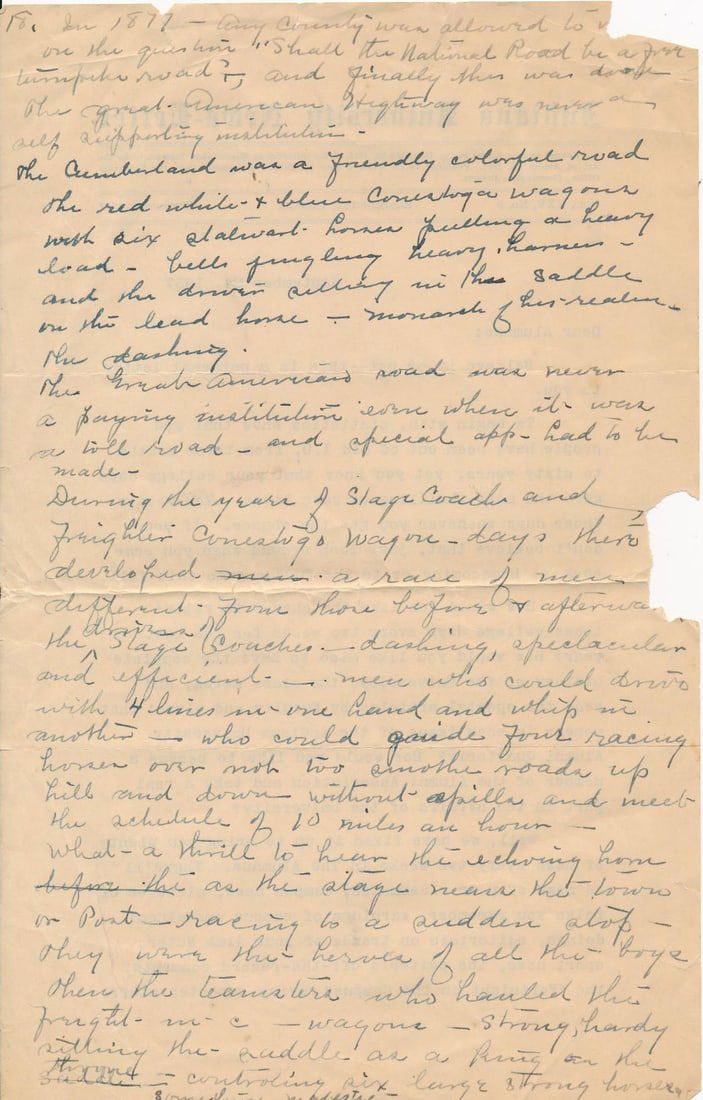 18. In 1877 — Any County was allowed to v
on the question "Shall the National Road be a free
turnpike road?", and finally this was done
The great American Highway was never a
self supporting institution —
The Cumberland was a friendly colorful road
the red white & blue Conestoga wagons
with six stalwart horses pulling a heavy
load — bells jingling heavy harness —
and the driver sitting in the saddle
on the lead horse — monarch of his realm —
the dashing.
The Great American road was never
a paying institution even when it was
a toll road — and special app— had to be
made —
During the years of Stage Coach and
freighter Conestogo wagon — days there
developed men a race of men
different from those before & afterwa
drivers of
the Stage Coaches — dashing, spectacular
and efficient — men who could drive
with 4 lines in one hand and whip in
another — who could guide four racing
horses over not too smothe roads up
hill and down without spills and meet
the schedule of 10 miles an hour —
What a thrill to hear the echoing horn
before the as the stage nears the town
or Post — racing to a sudden stop —
They were the heroes of all the boys
Then the teamsters who hauled the
freight in c — wagons — strong, hardy
sitting the saddle as a king on the
throne
saddle — controling six large strong horses
Dear Alumnus: